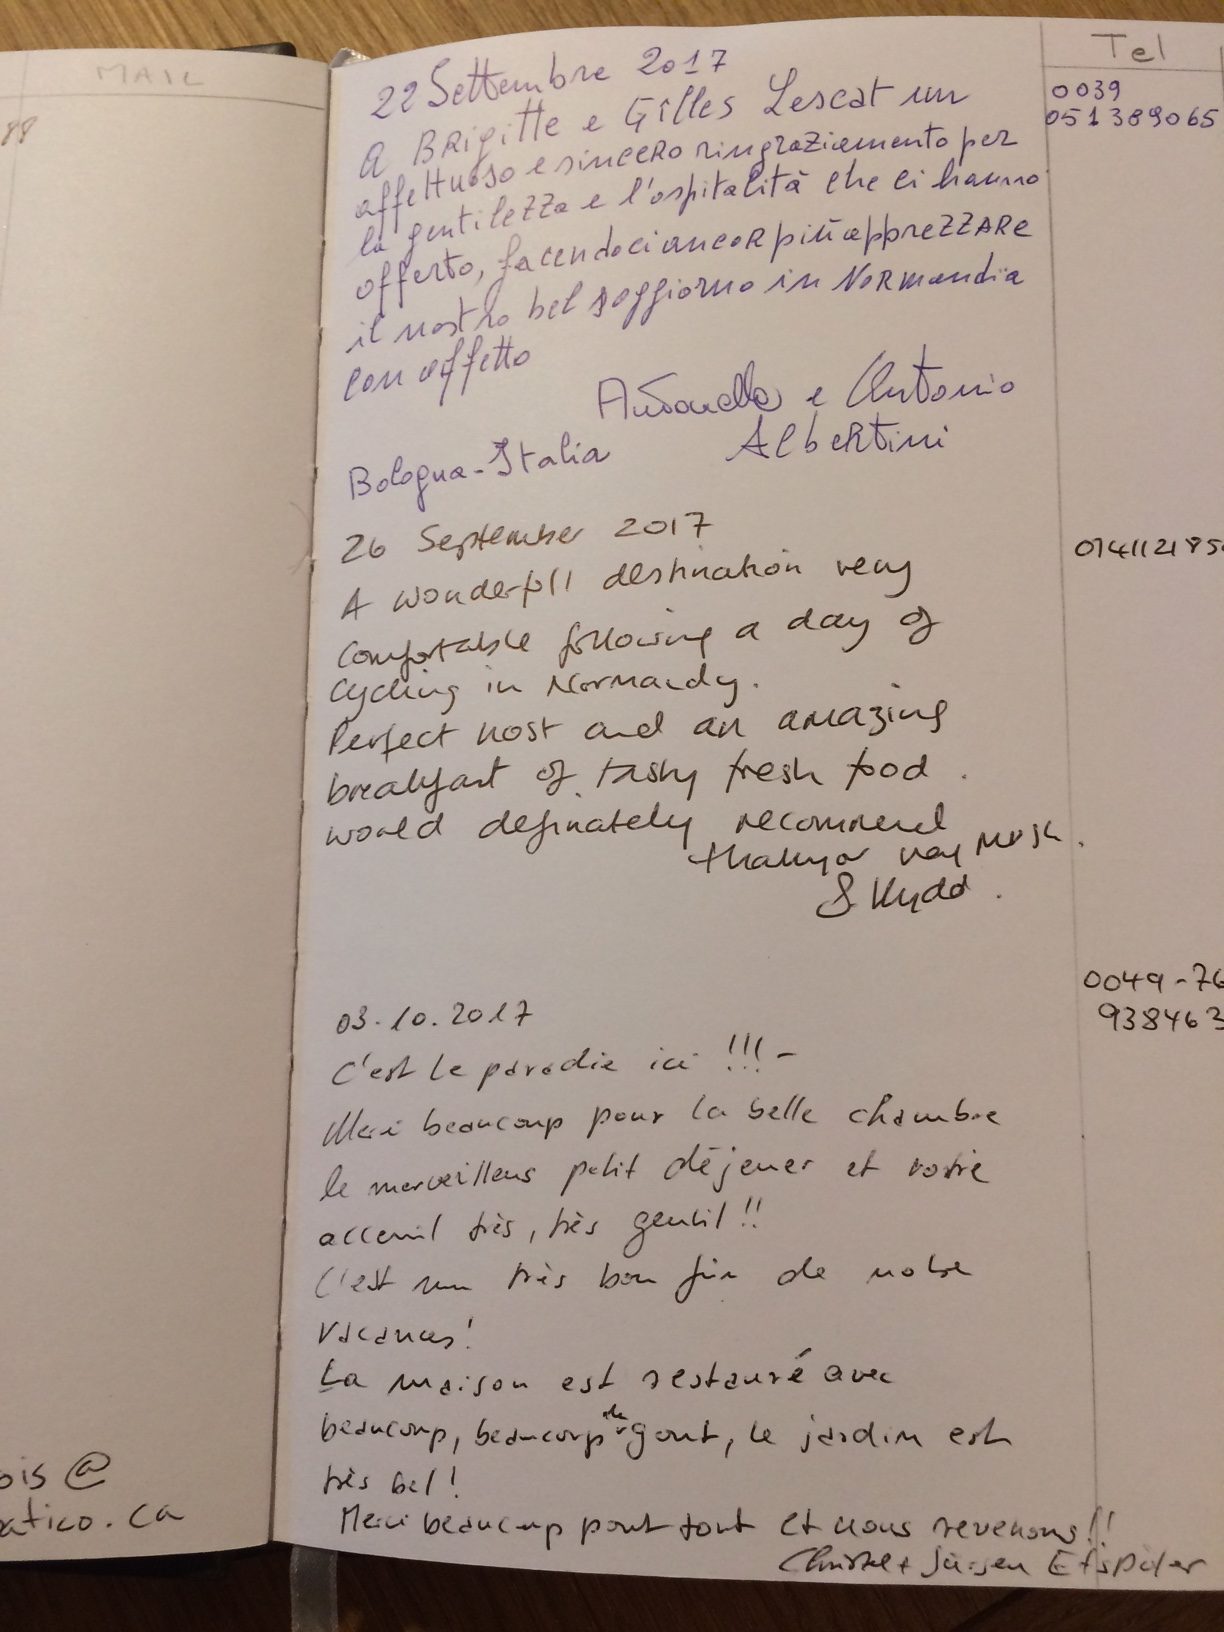 MAIL
88
ois @
atico.ca
Tel
22 Settembre 2017
0039
051389065
A BRigitte e Gilles Lescat un
affettuoso e sinceRo ringraziamento per
la gentilezza e l'ospitalità che ci hanno
offerto, facendoci ancoR più apprezzARe
il nostro bel soggiorno in NoRmandia
con affetto
Antonella e Antonio
AlbeRtini
Bologna-Italia
26 September 2017
0141121850
A wonderfull destination very
Comfortable following a day of
Cycling in Normandy.
Perfect host and an amazing
breakfast of tasty fresh food.
would definately recommend
thankyou very much.
S. Kydd.
0049-76
938463
03.10.2017
C'est le paradie ici !!! -
Merci beaucoup pour la belle chambre
le merveilleus petit déjeuer et votre
acceuil très, très gentil!!
C'est un très bon fin de notre
vacances!
La maison est restauré avec
beaucoup, beaucoup de gout, le jardin est
très bel!
Merci beaucoup pour tout et nous revenons!!
Christel + Jürgen